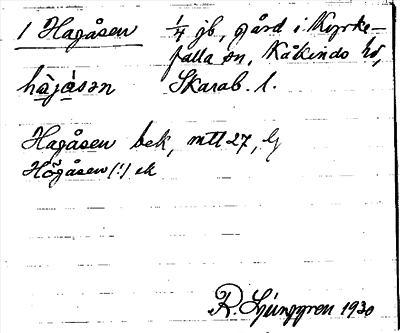 1 Hagåsen ¼ gb, gård i Kyrke-
falla sn, Kåkinds hd,
hàjásən Skarab. l.
Hagåsen bek, mtl 27, Lj
Högåsen (!) ek
R. Ljunggren 1930